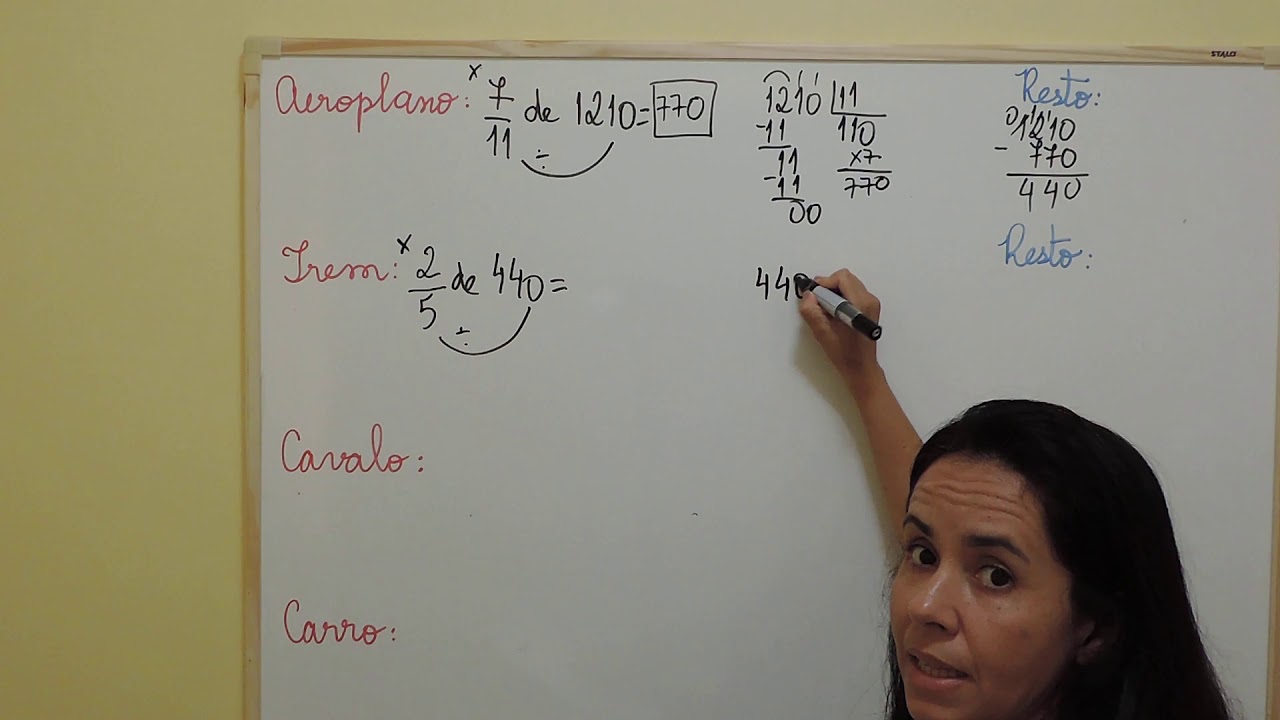 STALO
Aeroplano: x 7/11 de 1210 = 770
÷
1210 |11
-11 110
11 x7
-11 770
00
Resto:
01210
- 770
440
Trem: x 2/5 de 440 =
÷
440
Resto:
Cavalo:
Carro: